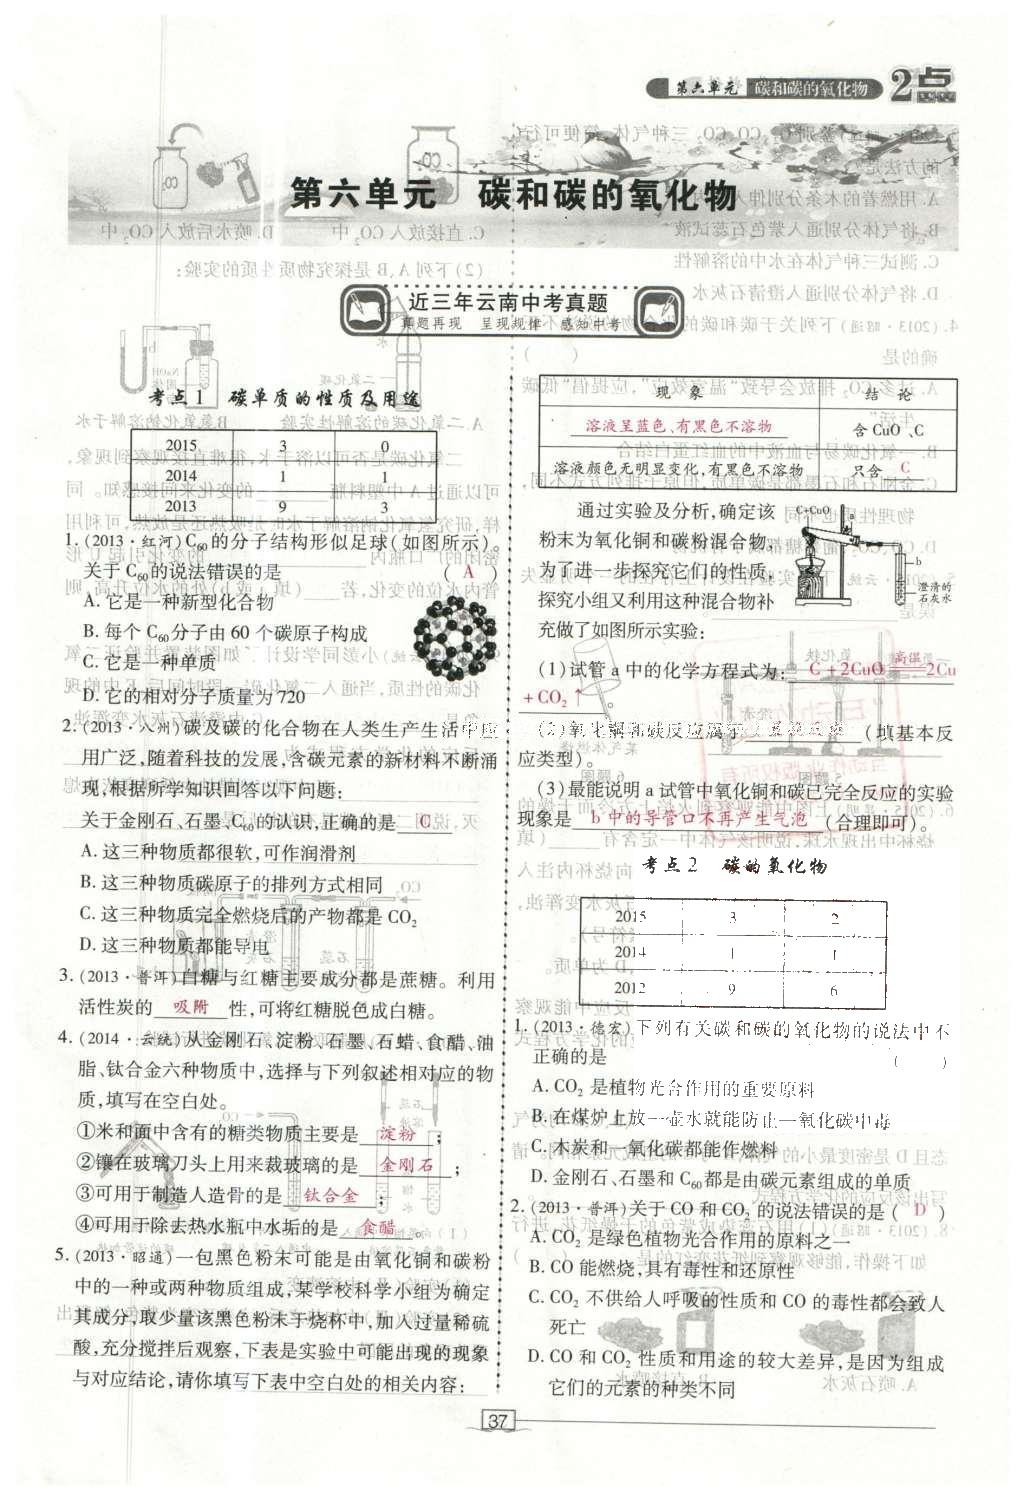 第六单元 碳和碳的氧化物 2点
第六单元 碳和碳的氧化物
近三年云南中考真题
真题再现 呈现规律 感知中考
考点1 碳单质的性质及用途
2015 3 0
2014 1 1
2013 9 3
1.(2013·红河)C60的分子结构形似足球(如图所示)。
关于C60的说法错误的是 ( A )
A. 它是一种新型化合物
B. 每个C60分子由60个碳原子构成
C. 它是一种单质
D. 它的相对分子质量为720
2.(2013·八州)碳及碳的化合物在人类生产生活中应
用广泛,随着科技的发展,含碳元素的新材料不断涌
现,根据所学知识回答以下问题:
关于金刚石、石墨、C60的认识,正确的是 C
A. 这三种物质都很软,可作润滑剂
B. 这三种物质碳原子的排列方式相同
C. 这三种物质完全燃烧后的产物都是CO2
D. 这三种物质都能导电
3.(2013·普洱)白糖与红糖主要成分都是蔗糖。利用
活性炭的 吸附 性,可将红糖脱色成白糖。
4.(2014·云统)从金刚石、淀粉、石墨、石蜡、食醋、油
脂、钛合金六种物质中,选择与下列叙述相对应的物
质,填写在空白处。
①米和面中含有的糖类物质主要是 淀粉 ;
②镶在玻璃刀头上用来裁玻璃的是 金刚石 ;
③可用于制造人造骨的是 钛合金 ;
④可用于除去热水瓶中水垢的是 食醋 。
5.(2013·昭通)一包黑色粉末可能是由氧化铜和碳粉
中的一种或两种物质组成,某学校科学小组为确定
其成分,取少量该黑色粉末于烧杯中,加入过量稀硫
酸,充分搅拌后观察,下表是实验中可能出现的现象
与对应结论,请你填写下表中空白处的相关内容:
现象 结论
溶液呈蓝色、有黑色不溶物 含CuO、C
溶液颜色无明显变化,有黑色不溶物 只含 C
通过实验及分析,确定该
粉末为氧化铜和碳粉混合物,
为了进一步探究它们的性质,
探究小组又利用这种混合物补
充做了如图所示实验:
C+CuO
a
b
澄清的
石灰水
(1)试管a中的化学方程式为: C+2CuO 高温 2Cu
+CO2↑ 。
(2)氧化铜和碳反应属于 (填基本反
应类型)。
(3)最能说明a试管中氧化铜和碳已完全反应的实验
现象是 b中的导管口不再产生气泡 (合理即可)。
考点2 碳的氧化物
2015 3 2
2014 1 1
2012 9 6
1.(2013·德宏)下列有关碳和碳的氧化物的说法中不
正确的是 ( )
A. CO2是植物光合作用的重要原料
B. 在煤炉上放一壶水就能防止一氧化碳中毒
C. 木炭和一氧化碳都能作燃料
D. 金刚石、石墨和C60都是由碳元素组成的单质
2.(2013·普洱)关于CO和CO2的说法错误的是( D )
A. CO2是绿色植物光合作用的原料之一
B. CO能燃烧,具有毒性和还原性
C. CO2不供给人呼吸的性质和CO的毒性都会致人
死亡
D. CO和CO2性质和用途的较大差异,是因为组成
它们的元素的种类不同
37